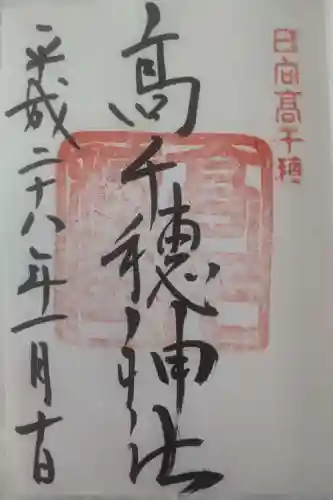 日向高千穂
髙千穂神社
平成二十八年一月十日